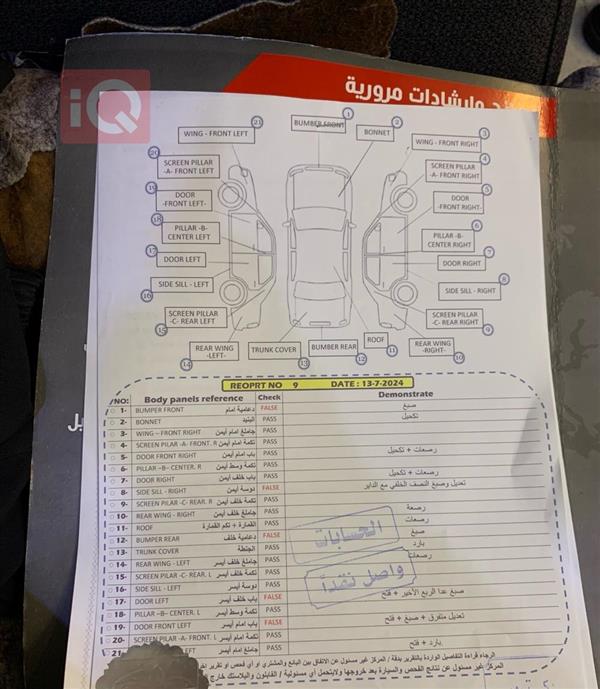 iQ
وإرشادات مرورية
BUMPER FRONT 1
BONNET 2
WING - FRONT RIGHT 3
SCREEN PILLAR -A- FRONT RIGHT 4
DOOR -FRONT RIGHT- 5
PILLAR -B- CENTER RIGHT 6
DOOR RIGHT 7
SIDE SILL - RIGHT 8
SCREEN PILLAR -C- REAR RIGHT 9
REAR WING -RIGHT- 10
ROOF 11
BUMPER REAR 12
TRUNK COVER 13
REAR WING -LEFT- 14
SCREEN PILLAR -C- REAR LEFT 15
SIDE SILL - LEFT 16
DOOR LEFT 17
PILLAR -B- CENTER LEFT 18
DOOR -FRONT LEFT- 19
SCREEN PILLAR -A- FRONT LEFT 20
WING - FRONT LEFT 21
REOPRT NO 9 DATE : 13-7-2024
NO: Body panels reference Check Demonstrate
1- BUMPER FRONT دعامية امام FALSE صبغ
2- BONNET البنيد PASS تكحيل
3- WING – FRONT RIGHT جاملغ امام أيمن PASS
4- SCREEN PILLAR -A- FRONT. R تكمة امام أيمن PASS
5- DOOR FRONT RIGHT باب امام أيمن PASS رصعات + تكحيل
6- PILLAR –B– CENTER. R تكمة وسط أيمن PASS
7- DOOR RIGHT باب خلف أيمن PASS رصعات + تكحيل
8- SIDE SILL - RIGHT دوسة أيمن FALSE تعديل وصبغ النصف الخلفي مع الداير
9- SCREEN PILAR -C- REAR. R تكمة خلف أيمن PASS
10- REAR WING - RIGHT جاملغ خلف أيمن PASS رصعة
11- ROOF القمارة + تكم القمارة PASS رصعات
12- BUMPER REAR دعامية خلف FALSE صبغ
13- TRUNK COVER الجنطة PASS بارد
14- REAR WING - LEFT جاملغ خلف أيسر PASS رصعات
15- SCREEN PILLAR -C- REAR. L تكمة خلف أيسر PASS
16- SIDE SILL - LEFT دوسة أيسر PASS
17- DOOR LEFT باب خلف أيسر FALSE صبغ عدا الربع الأخير + فتح
18- PILLAR –B– CENTER. L تكمة وسط أيسر PASS
19- DOOR FRONT LEFT باب امام أيسر FALSE تعديل متفرق + صبغ + فتح
20- SCREEN PILLAR -A- FRONT. L تكمة امام أيسر PASS
21- LEFT جاملغ امام أيسر PASS بارد + فتح
الحسابات
واصل نقداً
الرجاء قراءة التفاصيل الواردة بالتقرير بدقة / المركز غير مسئول عن الاتفاق بين البائع والمشتري او أي فحص او تقرير
المركز غير مسئول عن نتائج الفحص والسيارة بعد خروجها ولايتحمل أي مسئولية / القانون والبلاستك خارج